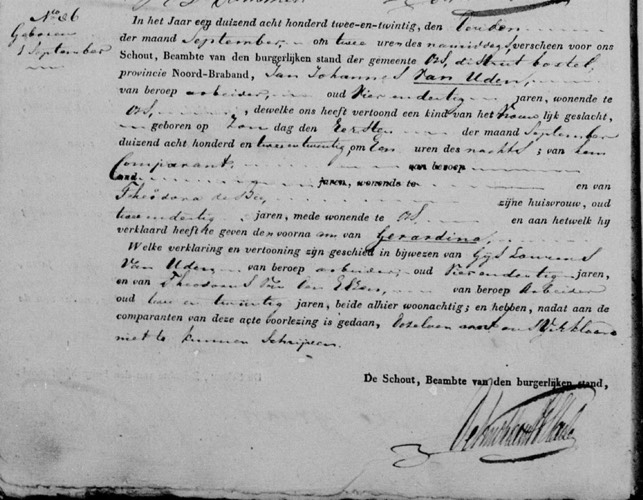 No 86
Geboren
1 September
In het Jaar een duizend acht honderd twee-en-twintig, den
de maand September, om twee uren des namiddags, verscheen voor ons
Schout, Beambte van den burgerlijken stand der gemeente Os, district boxtel,
provincie Noord-Braband, Jan Johannes Van Uden,
van beroep arbeider, oud Vier en dertig jaren, wonende te
Os, dewelke ons heeft vertoond een kind van het vrouwlijk geslacht,
geboren op Zondag den Eersten der maand September
duizend acht honderd en twee en twintig, om Een uren des nachts; van den
Comparant. van beroep
jaren, wonende te en van
Theodora de Bie, zijne huisvrouw, oud
twee en dertig jaren, mede wonende te Os. en aan hetwelk hij
verklaard heeft te geven den voorna am van Gerardina.
Welke verklaring en vertooning zijn geschied in bijwezen van Gijs Louwens
Van Uden, van beroep arbeider, oud Vier en dertig jaren,
en van Theodorus Van den van beroep Arbeider
oud twee en twintig jaren, beide alhier woonachtig; en hebben, nadat aan de
comparanten van deze acte voorlezing is gedaan, dezelven verklaard
niet te kunnen Schrijven.
De Schout, Beambte van den burgerlijken stand,